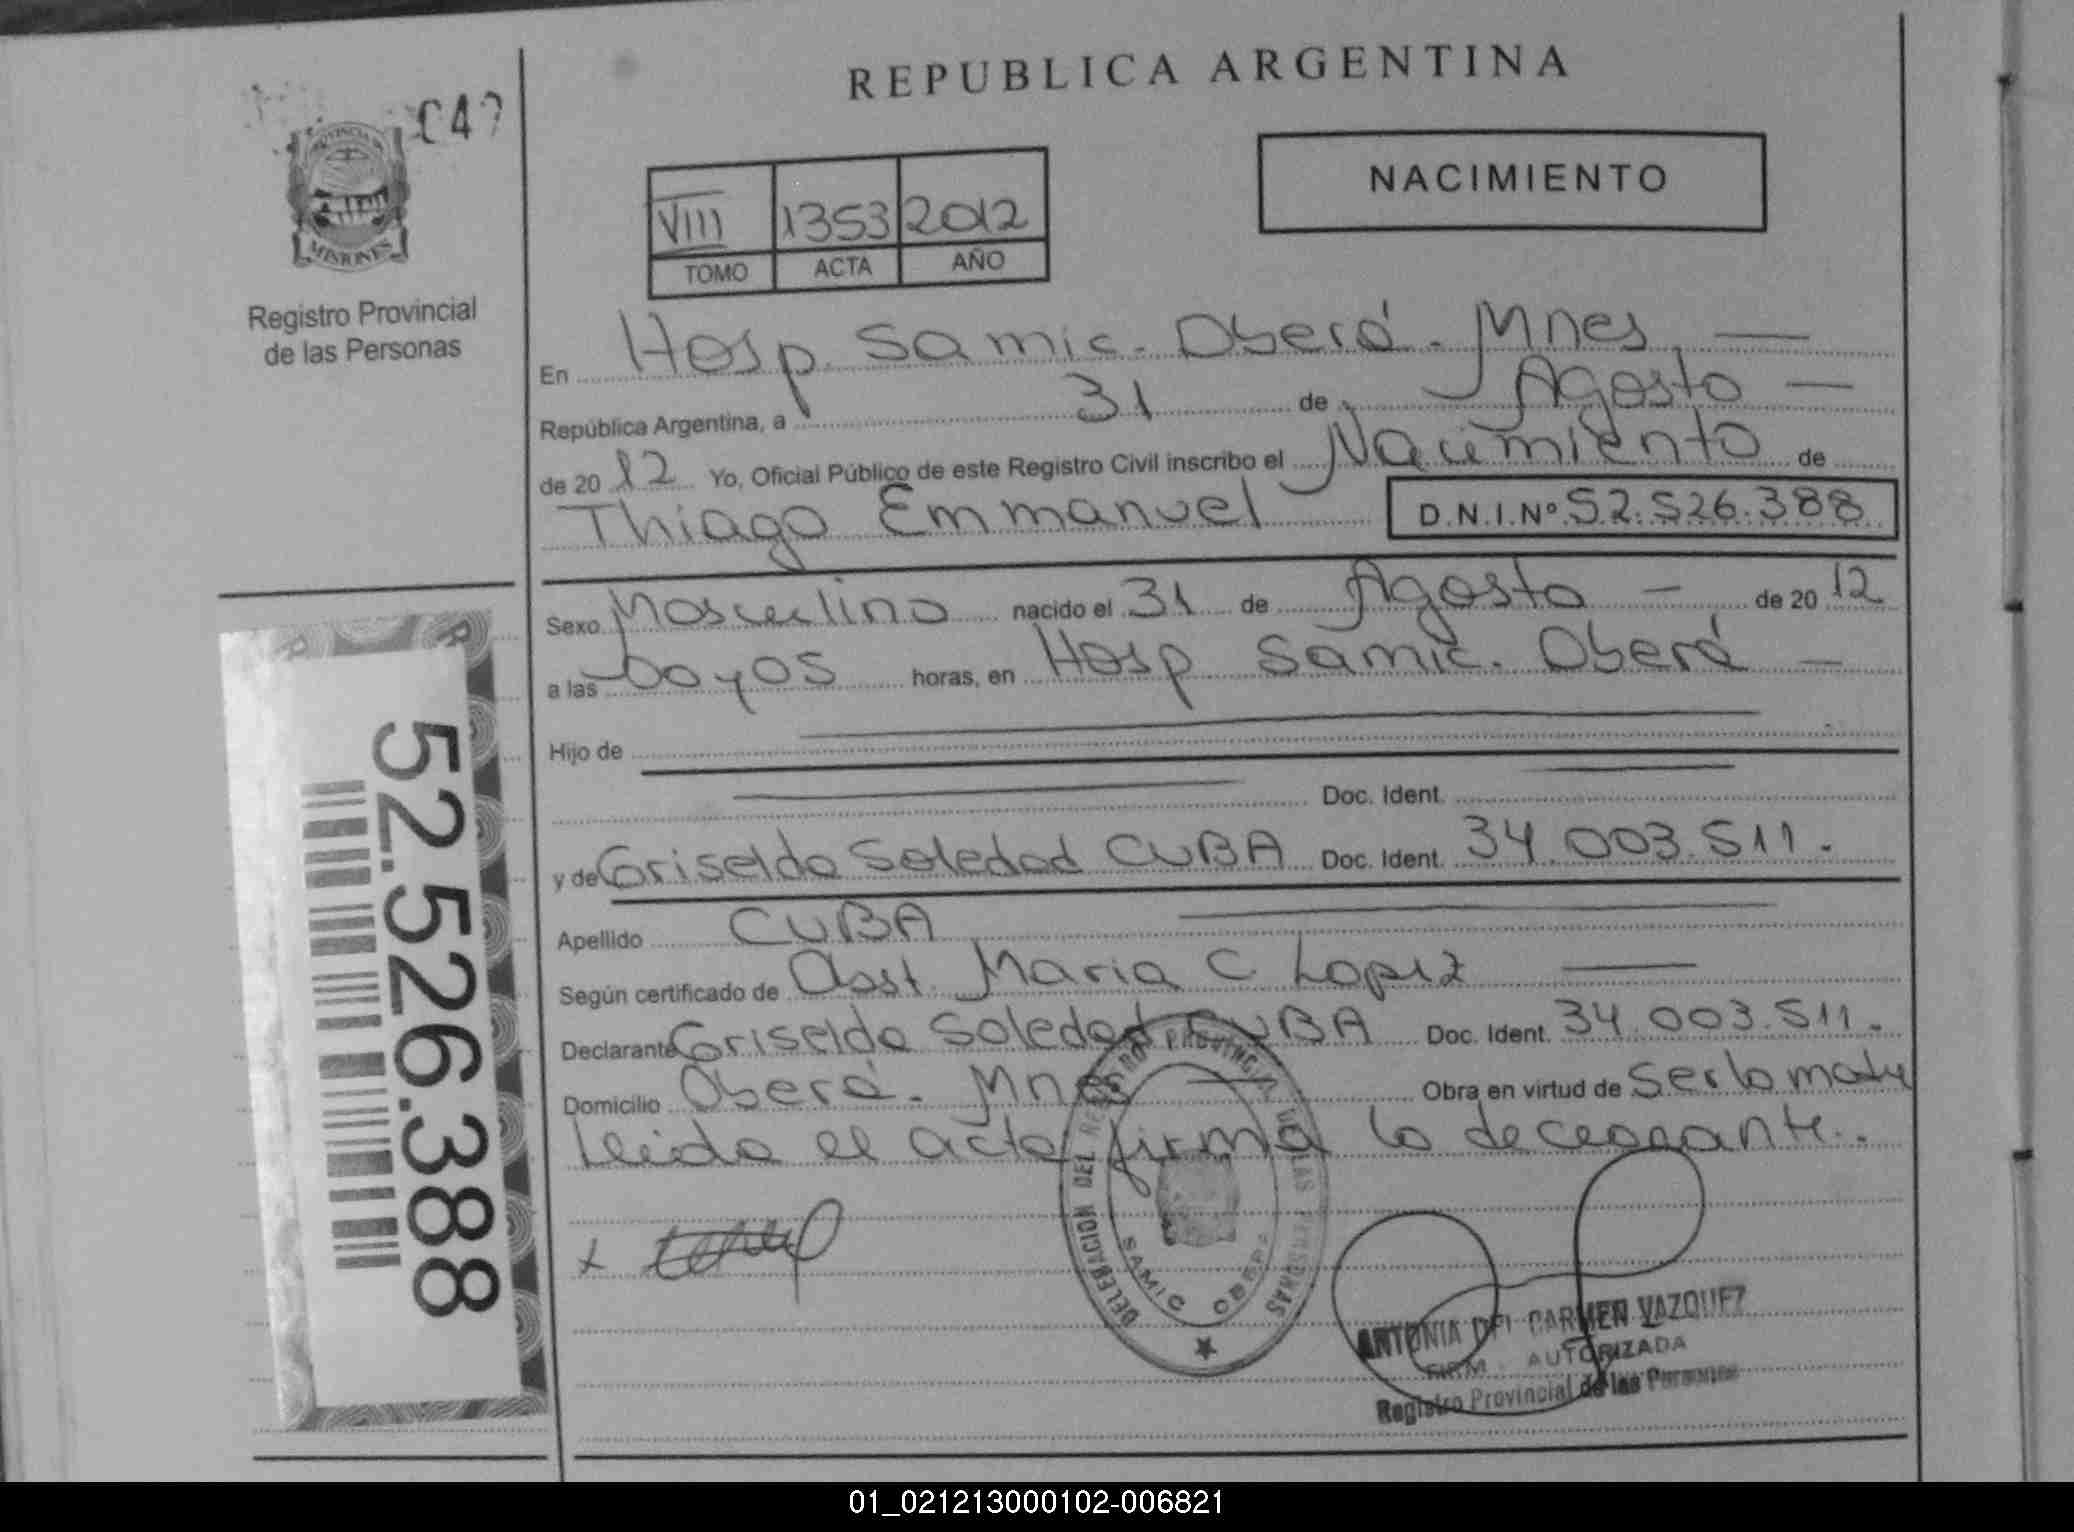 REPUBLICA ARGENTINA
C47
PROVINCIA DE
MISIONES
Registro Provincial
de las Personas
NACIMIENTO
VIII 1353 2012
TOMO ACTA AÑO
En Hosp. Samic. Oberá. Mnes.
República Argentina, a 31 de Agosto
de 2012 Yo, Oficial Público de este Registro Civil inscribo el Nacimiento de
Thiago Emmanuel D.N.I.Nº 52.526.388
Sexo Masculino nacido el 31 de Agosto de 2012
a las 00 y 05 horas, en Hosp Samic. Oberá
Hijo de
Doc. Ident.
y de Griselda Soledad CUBA Doc. Ident. 34.003.511.
Apellido CUBA
Según certificado de Obst. Maria C Lopez
Declarante Griselda Soledad CUBA Doc. Ident. 34.003.511.
Domicilio Oberá. Mnes Obra en virtud de ser la madre
Leida el acta firma la declarante.
52.526.388
DELEGACION DEL REGISTRO PROVINCIAL DE LAS PERSONAS
SAMIC OBERA
ANTONIA DEL CARMEN VAZQUEZ
FIRMA AUTORIZADA
Registro Provincial de las Personas
01_021213000102-006821